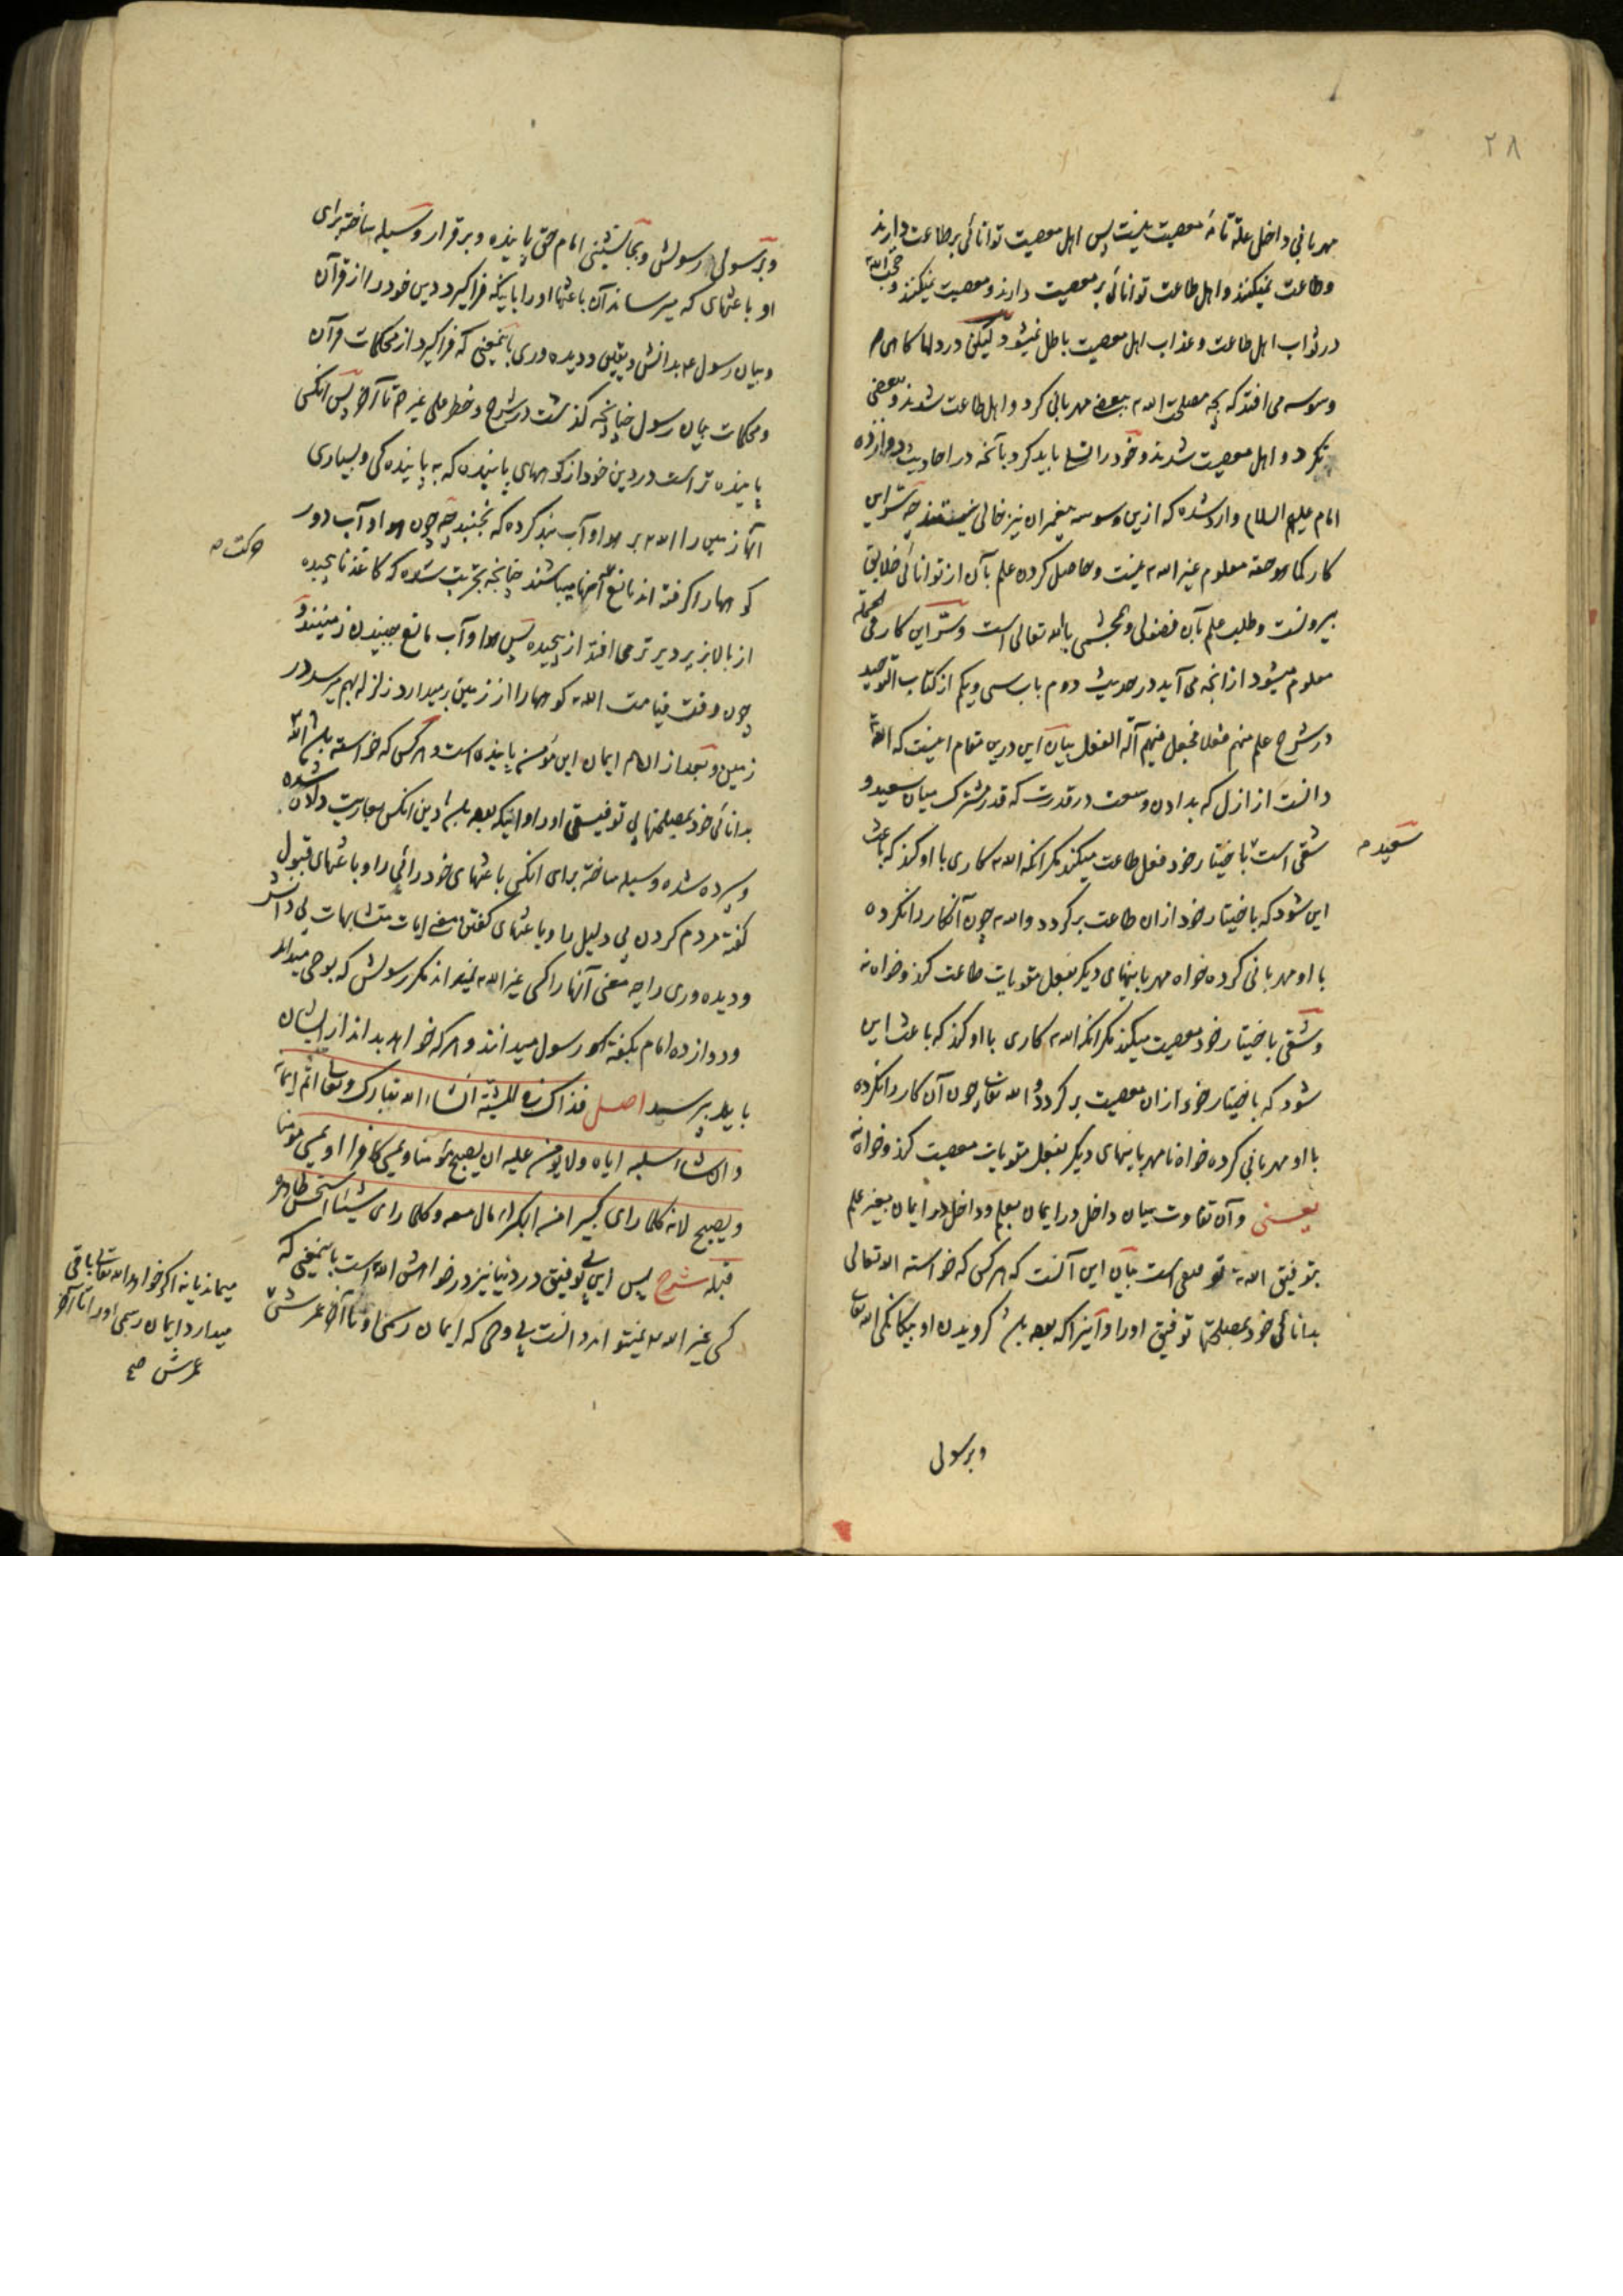 ۲۸
مهربانی داخل علة تامهٔ معصیت نیست پس اهل معصیت توانائی بر طاعت دارند
و طاعت نمیکنند و اهل طاعت توانائی بر معصیت دارند و معصیت نمیکنند و حجت الله
در ثواب اهل طاعت و عذاب اهل معصیت باطل نمیشود لیکن در دلها گاهی
وسوسه می افتد که بچه مصلحت الله ببعضی مهربانی کرد و اهل طاعت شدند و ببعضی
نکرد و اهل معصیت شدند و خود را تسلی باید کرد بآنچه در احادیث دوازده
امام علیهم السلام وارد شده که ازین وسوسه پیغمبران نیز خالی نیستند چه سر این
کار کما هو حقه معلوم غیر الله نیست و حاصل کردن علم بآن از توانائی خلایق
بیرونست و طلب علم بآن فضولی و بحثی با الله تعالی است و سر این کار فی الجمله
معلوم میشود از آنچه می آید در حدیث دوم باب سی و یکم از کتاب التوحید
در شرح علم منهم فعلا فجعل فیهم آلة الفعل بیان این درین مقام اینست که الله
دانست از ازل که بدادن وسعت در قدرت که قدر مشترک میان سعید و
شقی است باختیار خود فعل طاعت میکند مگر آنکه الله کاری با او کند که باعث
سعید
این شود که باختیار خود ازان طاعت برگردد و الله چون آنکار را نکرده
با او مهربانی کرده خواه مهربانیهای دیگر بفعل مقویات طاعت کند و خواه نه
و شقی باختیار خود معصیت میکند مگر آنکه الله کاری با او کند که باعث این
شود که باختیار خود ازان معصیت برگردد و الله تعالی چون آن کار را نکرده
با او مهربانی کرده خواه نامهربانیهای دیگر بفعل مقویات معصیت کند و خواه نه
یعنی و آن تفاوت میان داخل در ایمان بعلم و داخل در ایمان بغیر علم
بتوفیق الله تعالی است بیان این آنست که هر کس که خواسته الله تعالی
بدانائی خود بمصلحتها توفیق او را و آنرا که بوده باشد گرویدن او بیگانگی الله تعالی
و برسولی
و برسولی رسولش و بجانشینی امام حق پاینده و برقرار وسیله ساخته برای
او باعثهای که میرساند آن باعثها او را باینکه فرا گیرد دین خود را از قرآن
و بیان رسول بدانش و یقین و دیده وری باینمعنی که فرا گیرد از محکمات قرآن
و محکمات بیان رسول چنانچه گذشت در شرح و خطر علی غیرهم تا آخر پس آنکس
پاینده تر است در دین خود از کوههای پاینده که به پاینده گی و بسیاری
آنها زمین را الله بر هوا و آب بند کرده که نجنبد چه چون هوا و آب دور
کوهها را گرفته اند مانع آنها میباشند چنانچه بتجربت شده که کاغذ ناپیچیده
حرکت
از بالا بزیر دیرتر می افتد از پیچیده پس هوا و آب مانع جنبیدن زمینند و
چون وقت قیامت الله کوهها را از زمین بر میدارد زلزله بهم میرسد در
زمین و بعد از الهام ایمان این مؤمن پاینده است و هر کس که خواسته باشد الله
بدانائی خود بمصلحتها بی توفیقی او را و اینکه بوده باشد دین آنکس بعاریت داده شده
و سپرده شده وسیله ساخته برای آنکس باعثهای خود رائی را و باعثهای قبول
گفته مردم کردن بی دلیل را و باعثهای گفتن معنی آیات متشابهات بی دانش
و دیده وری را چه معنی آنها را کسی غیر الله نمیداند مگر رسولش که بوحی میداند
و دوازده امام بگفتهٔ رسول میدانند و هر که خواهد بداند از ایشان
باید بپرسد اصل فذاک فی المشیئة ان شاء الله تبارک و تعالی اتم ایمانه
و ان شاء سلبه ایاه و لا یؤمن علیه ان یصبح مؤمنا و یمسی کافرا او یمسی مؤمنا
و یصبح لانه کلما رای کبیرا من الکبراء مال معه و کلما رای شیئا استحسن ظاهره
قبله شرح پس این بی توفیق در دنیا نیز در خواهش الله است باینمعنی که
کسی غیر الله نمیتواند دانست بی وحی که ایمان رسمی او تا آخر عمرش
میماند یا نه اگر خواهد الله تعالی باقی
میدارد ایمان رسمی او را تا آخر
عمرش صح